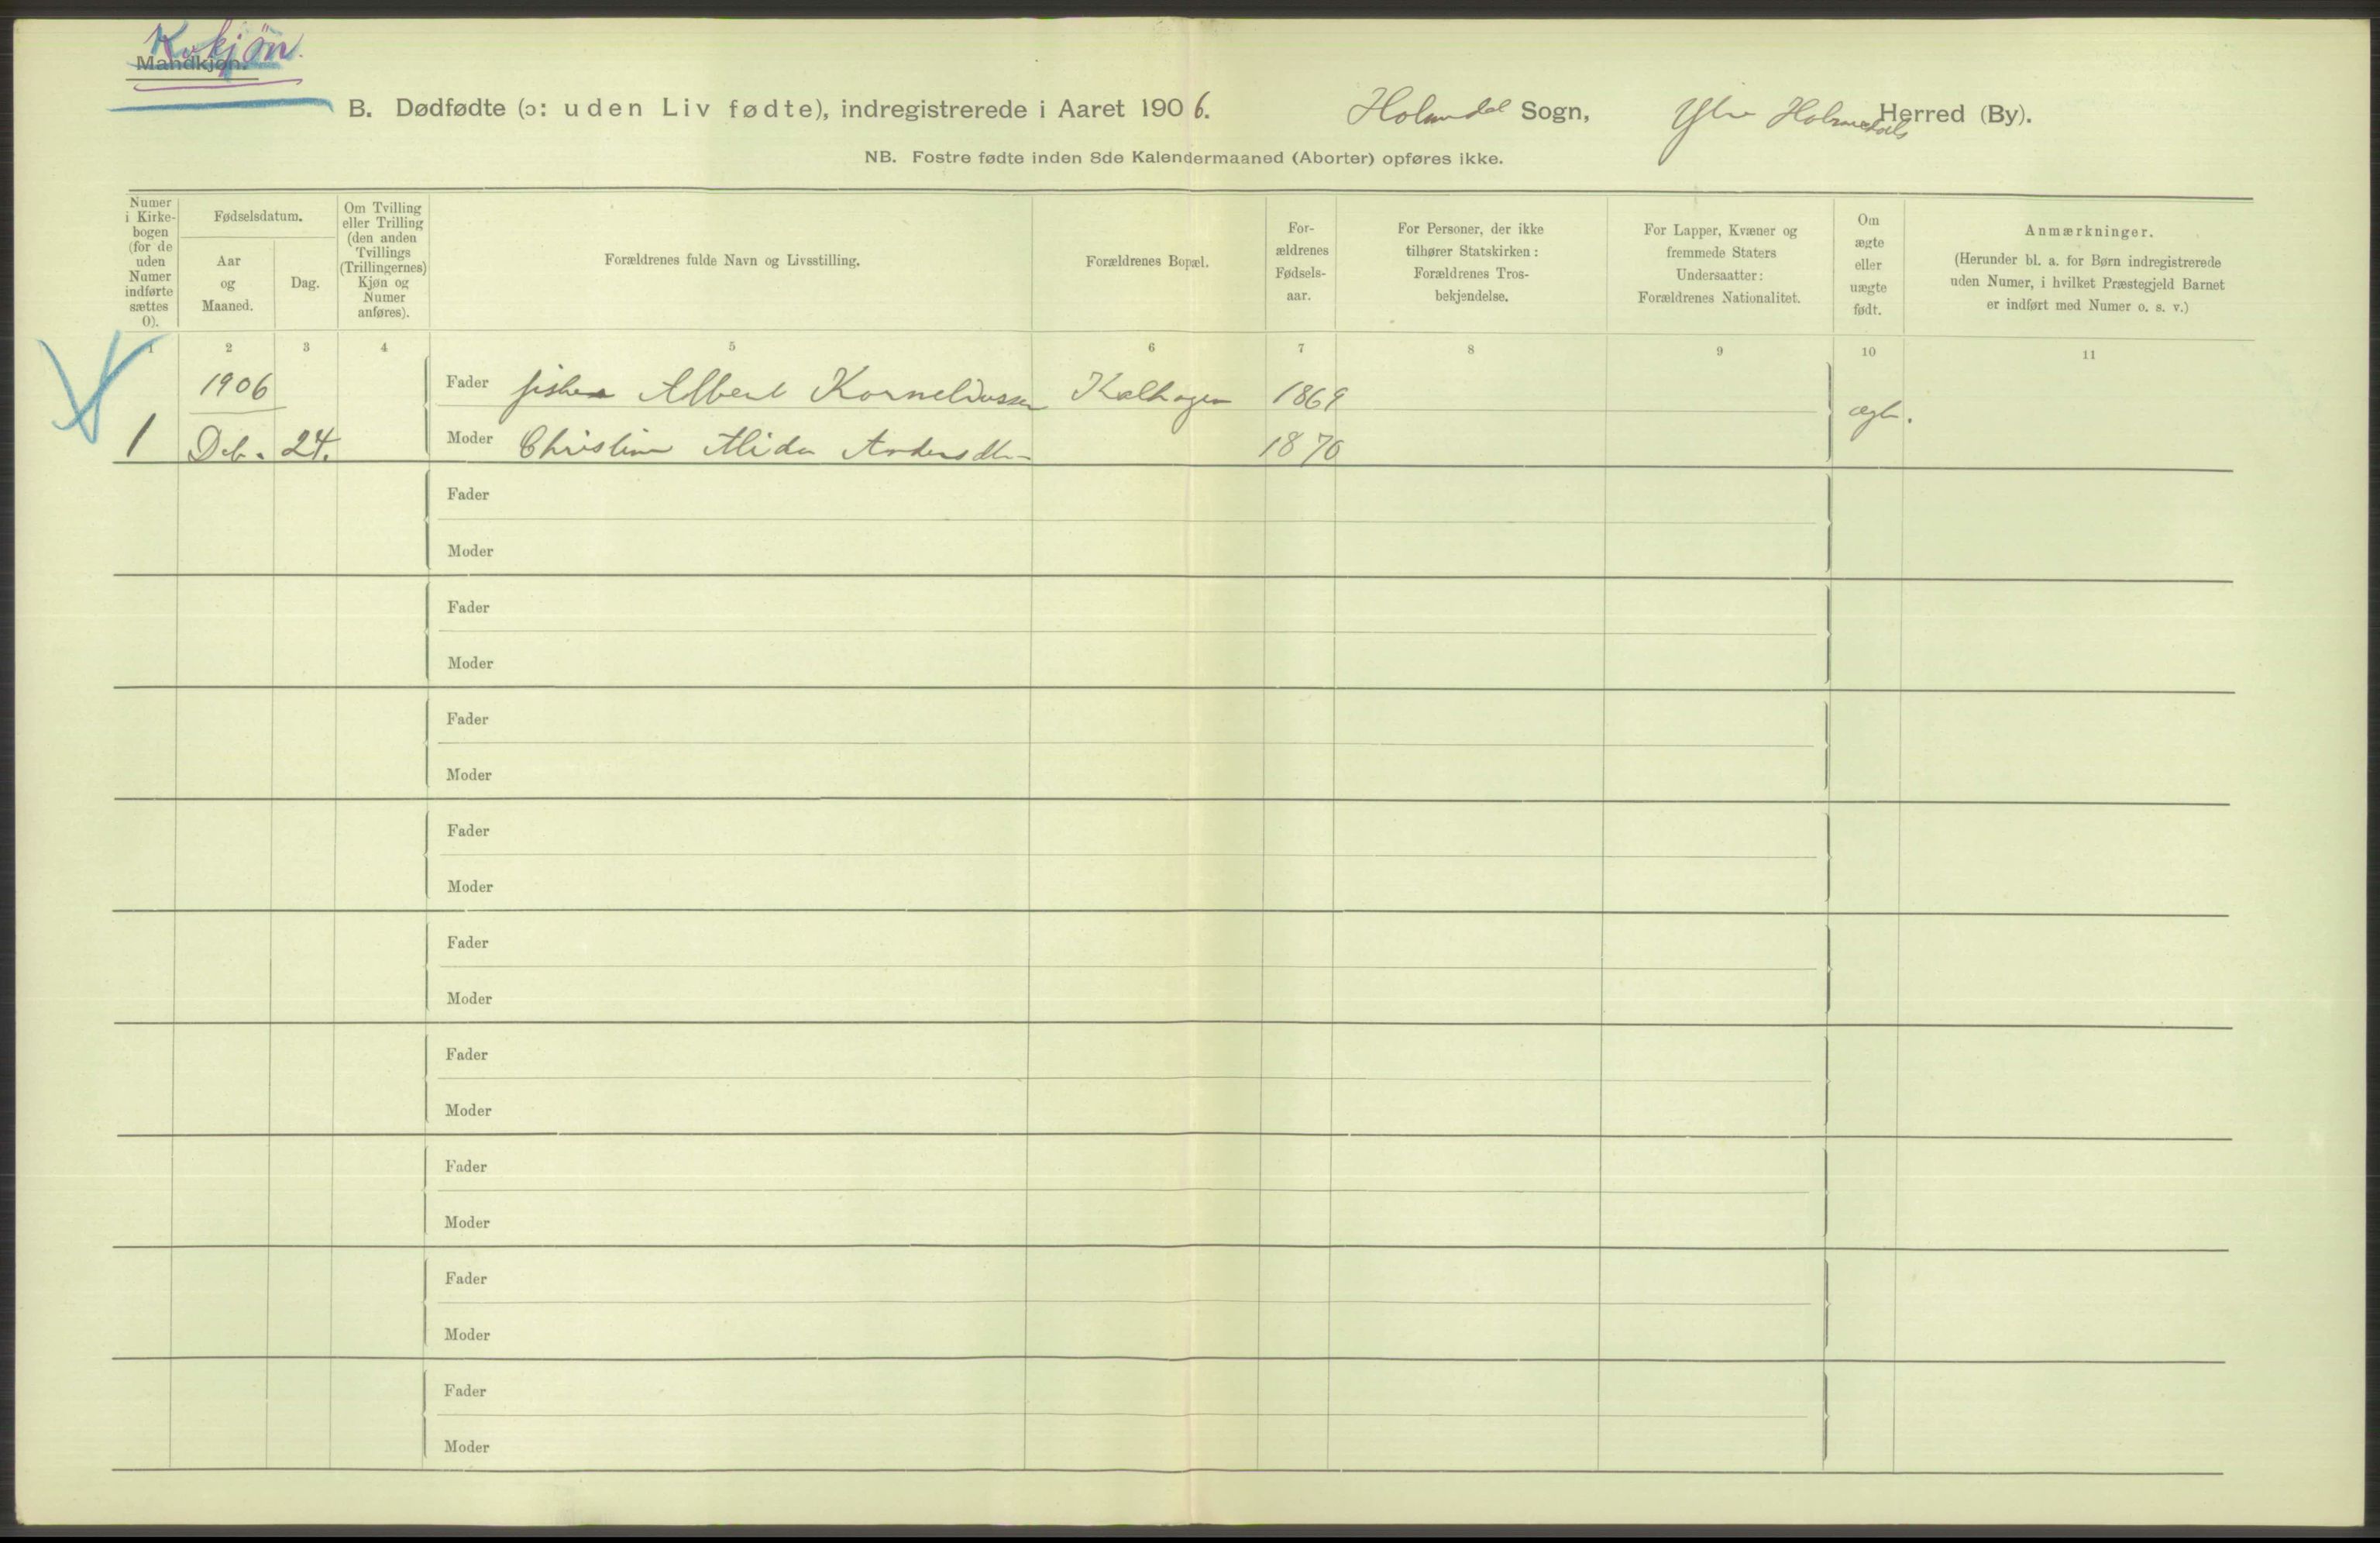 Kvkjøn.
Mandkjøn.
B. Dødfødte (ɔ: uden Liv fødte), indregistrerede i Aaret 1906. Holmedal Sogn, Ytre Holmedals Herred (By).
NB. Fostre fødte inden 8de Kalendermaaned (Aborter) opføres ikke.
Numer i Kirke-bogen (for de uden Numer indførte sættes 0).
Fødselsdatum.
Aar og Maaned.
Dag.
Om Tvilling eller Trilling (den anden Tvillings (Trillingernes) Kjøn og Numer anføres).
Forældrenes fulde Navn og Livsstilling.
Forældrenes Bopæl.
For-ældrenes Fødsels-aar.
For Personer, der ikke tilhører Statskirken: Forældrenes Tros-bekjendelse.
For Lapper, Kvæner og fremmede Staters Undersaatter: Forældrenes Nationalitet.
Om ægte eller uægte født.
Anmærkninger.
(Herunder bl. a. for Børn indregistrerede uden Numer, i hvilket Præstegjeld Barnet er indført med Numer o. s. v.)
1 2 3 4 5 6 7 8 9 10 11
1906 Fader fisker Albert Korneliussen 1869
1 Deb. 24. Moder Christine Alida Andersdtr 1870 ægte.
Fader
Moder
Fader
Moder
Fader
Moder
Fader
Moder
Fader
Moder
Fader
Moder
Fader
Moder
Fader
Moder
Fader
Moder